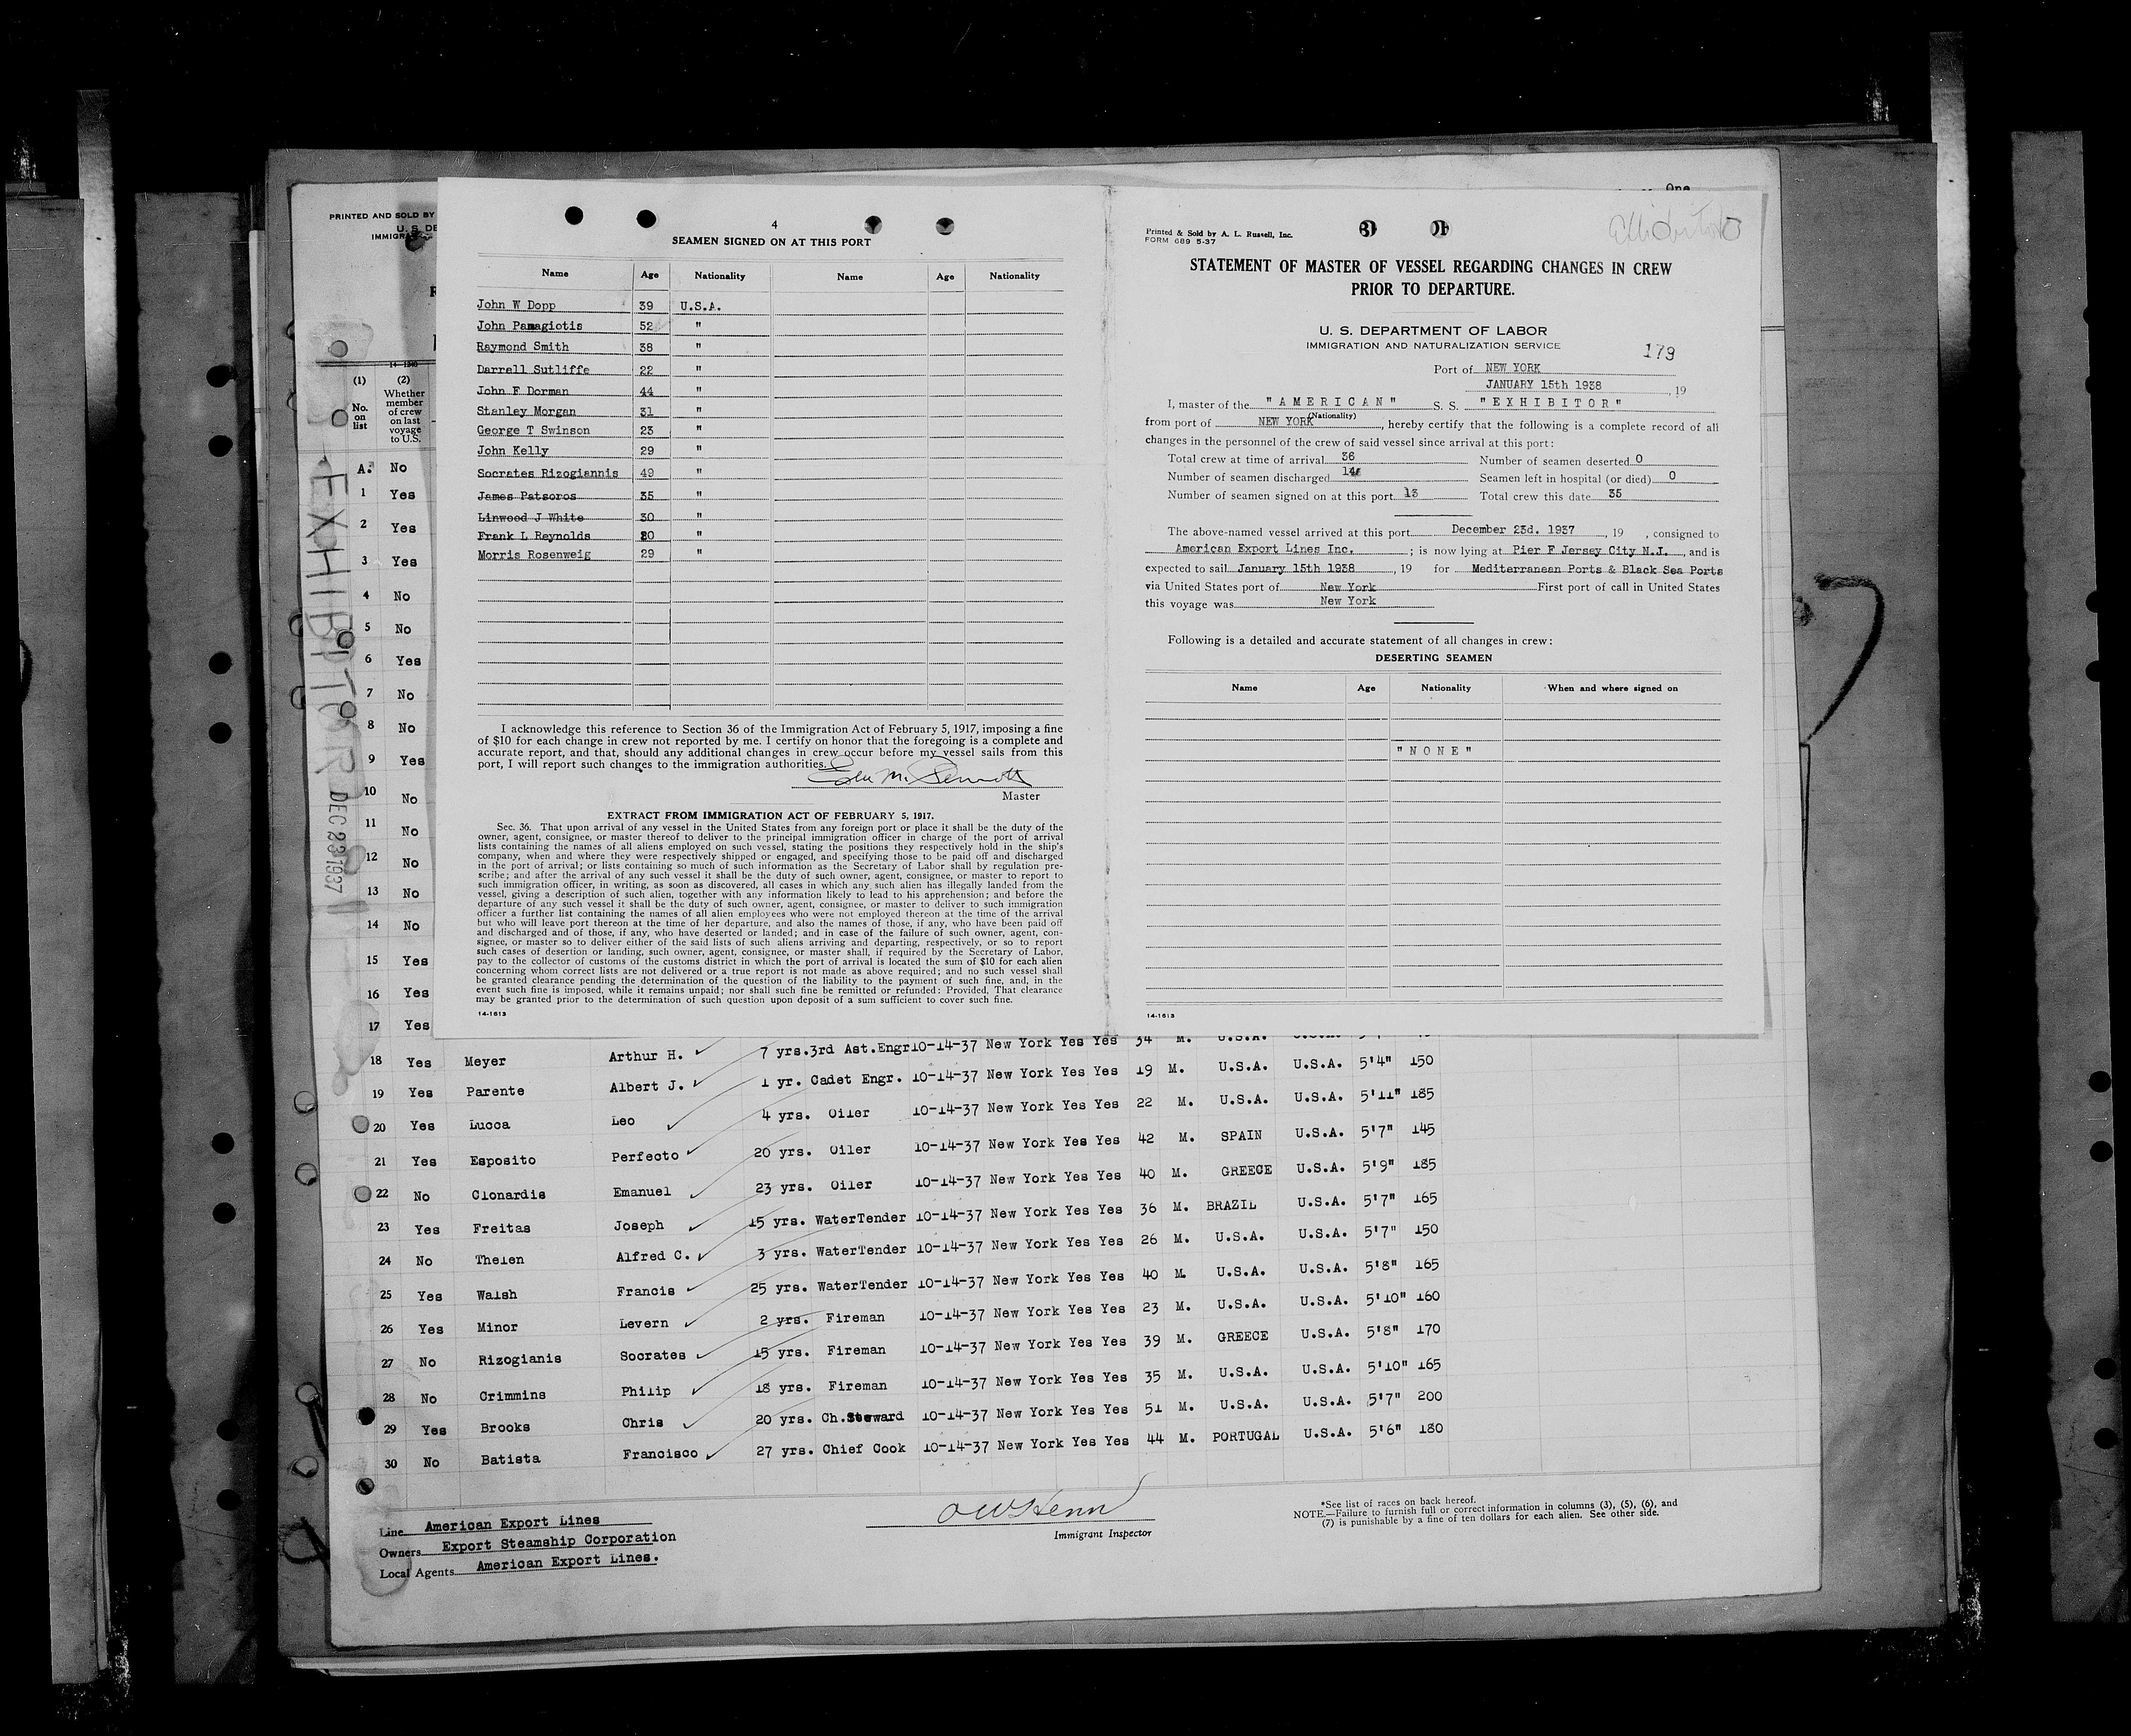 One
PRINTED AND SOLD BY
U. S. DE
IMMIGRA
14-1240
(1)
No. on list
(2)
Whether member of crew on last voyage to U.S.
A. No
1 Yes
2 Yes
3 Yes
4 No
5 No
6 Yes
7 No
8 No
9 Yes
10 No
11 No
12 No
13 No
14 No
15 Yes
16 Yes
17 Yes
EXHIBITOR DEC 23 1937
4
SEAMEN SIGNED ON AT THIS PORT
Name Age Nationality Name Age Nationality
John W Dopp 39 U.S.A.
John Panagiotis 52 "
Raymond Smith 38 "
Darrell Sutliffe 22 "
John F Dorman 44 "
Stanley Morgan 31 "
George T Swinson 23 "
John Kelly 29 "
Socrates Rizogiannis 49 "
James Patsoros 35 "
Linwood J White 30 "
Frank L Reynolds 20 "
Morris Rosenweig 29 "
I acknowledge this reference to Section 36 of the Immigration Act of February 5, 1917, imposing a fine
of $10 for each change in crew not reported by me. I certify on honor that the foregoing is a complete and
accurate report, and that, should any additional changes in crew occur before my vessel sails from this
port, I will report such changes to the immigration authorities.
Master
EXTRACT FROM IMMIGRATION ACT OF FEBRUARY 5, 1917.
Sec. 36. That upon arrival of any vessel in the United States from any foreign port or place it shall be the duty of the
owner, agent, consignee, or master thereof to deliver to the principal immigration officer in charge of the port of arrival
lists containing the names of all aliens employed on such vessel, stating the positions they respectively hold in the ship's
company, when and where they were respectively shipped or engaged, and specifying those to be paid off and discharged
in the port of arrival; or lists containing so much of such information as the Secretary of Labor shall by regulation pre-
scribe; and after the arrival of any such vessel it shall be the duty of such owner, agent, consignee, or master to report to
such immigration officer, in writing, as soon as discovered, all cases in which any such alien has illegally landed from the
vessel, giving a description of such alien, together with any information likely to lead to his apprehension; and before the
departure of any such vessel it shall be the duty of such owner, agent, consignee, or master to deliver to such immigration
officer a further list containing the names of all alien employees who were not employed thereon at the time of the arrival
but who will leave port thereon at the time of her departure, and also the names of those, if any, who have been paid off
and discharged and of those, if any, who have deserted or landed; and in case of the failure of such owner, agent, con-
signee, or master so to deliver either of the said lists of such aliens arriving and departing, respectively, or so to report
such cases of desertion or landing, such owner, agent, consignee, or master shall, if required by the Secretary of Labor,
pay to the collector of customs of the customs district in which the port of arrival is located the sum of $10 for each alien
concerning whom correct lists are not delivered or a true report is not made as above required; and no such vessel shall
be granted clearance pending the determination of the question of the liability to the payment of such fine, and, in the
event such fine is imposed, while it remains unpaid; nor shall such fine be remitted or refunded: Provided, That clearance
may be granted prior to the determination of such question upon deposit of a sum sufficient to cover such fine.
14-1613
Printed & Sold by A. L. Russell, Inc.
FORM 689 5-37
STATEMENT OF MASTER OF VESSEL REGARDING CHANGES IN CREW
PRIOR TO DEPARTURE.
U. S. DEPARTMENT OF LABOR
IMMIGRATION AND NATURALIZATION SERVICE
179
Port of NEW YORK
JANUARY 15th 1938, 19
I, master of the "AMERICAN" S. S. "EXHIBITOR"
(Nationality)
from port of NEW YORK, hereby certify that the following is a complete record of all
changes in the personnel of the crew of said vessel since arrival at this port:
Total crew at time of arrival 36 Number of seamen deserted 0
Number of seamen discharged 14 Seamen left in hospital (or died) 0
Number of seamen signed on at this port 13 Total crew this date 35
The above-named vessel arrived at this port December 23d. 1937, 19 , consigned to
American Export Lines Inc. ; is now lying at Pier F Jersey City N.J., and is
expected to sail January 15th 1938, 19 for Mediterranean Ports & Black Sea Ports
via United States port of New York First port of call in United States
this voyage was New York
Following is a detailed and accurate statement of all changes in crew:
DESERTING SEAMEN
Name Age Nationality When and where signed on
"NONE"
14-1613
18 Yes Meyer Arthur H. 7 yrs. 3rd Ast.Engr 10-14-37 New York Yes Yes 34 M. U.S.A.
19 Yes Parente Albert J. 1 yr. Cadet Engr. 10-14-37 New York Yes Yes 19 M. U.S.A. U.S.A. 5'4" 150
20 Yes Lucca Leo 4 yrs. Oiler 10-14-37 New York Yes Yes 22 M. U.S.A. U.S.A. 5'11" 185
21 Yes Esposito Perfecto 20 yrs. Oiler 10-14-37 New York Yes Yes 42 M. SPAIN U.S.A. 5'7" 145
22 No Clonardis Emanuel 23 yrs. Oiler 10-14-37 New York Yes Yes 40 M. GREECE U.S.A. 5'9" 185
23 Yes Freitas Joseph 15 yrs. WaterTender 10-14-37 New York Yes Yes 36 M. BRAZIL U.S.A. 5'7" 165
24 No Thelen Alfred C. 3 yrs. WaterTender 10-14-37 New York Yes Yes 26 M. U.S.A. U.S.A. 5'7" 150
25 Yes Walsh Francis 25 yrs. WaterTender 10-14-37 New York Yes Yes 40 M. U.S.A. U.S.A. 5'8" 165
26 Yes Minor Levern 2 yrs. Fireman 10-14-37 New York Yes Yes 23 M. U.S.A. U.S.A. 5'10" 160
27 No Rizogianis Socrates 15 yrs. Fireman 10-14-37 New York Yes Yes 39 M. GREECE U.S.A. 5'8" 170
28 No Crimmins Philip 18 yrs. Fireman 10-14-37 New York Yes Yes 35 M. U.S.A. U.S.A. 5'10" 165
29 Yes Brooks Chris 20 yrs. Ch.Steward 10-14-37 New York Yes Yes 51 M. U.S.A. U.S.A. 5'7" 200
30 No Batista Francisco 27 yrs. Chief Cook 10-14-37 New York Yes Yes 44 M. PORTUGAL U.S.A. 5'6" 180
Line American Export Lines
Owners Export Steamship Corporation
Local Agents American Export Lines.
Immigrant Inspector
*See list of races on back hereof.
NOTE.—Failure to furnish full or correct information in columns (3), (5), (6), and
(7) is punishable by a fine of ten dollars for each alien. See other side.